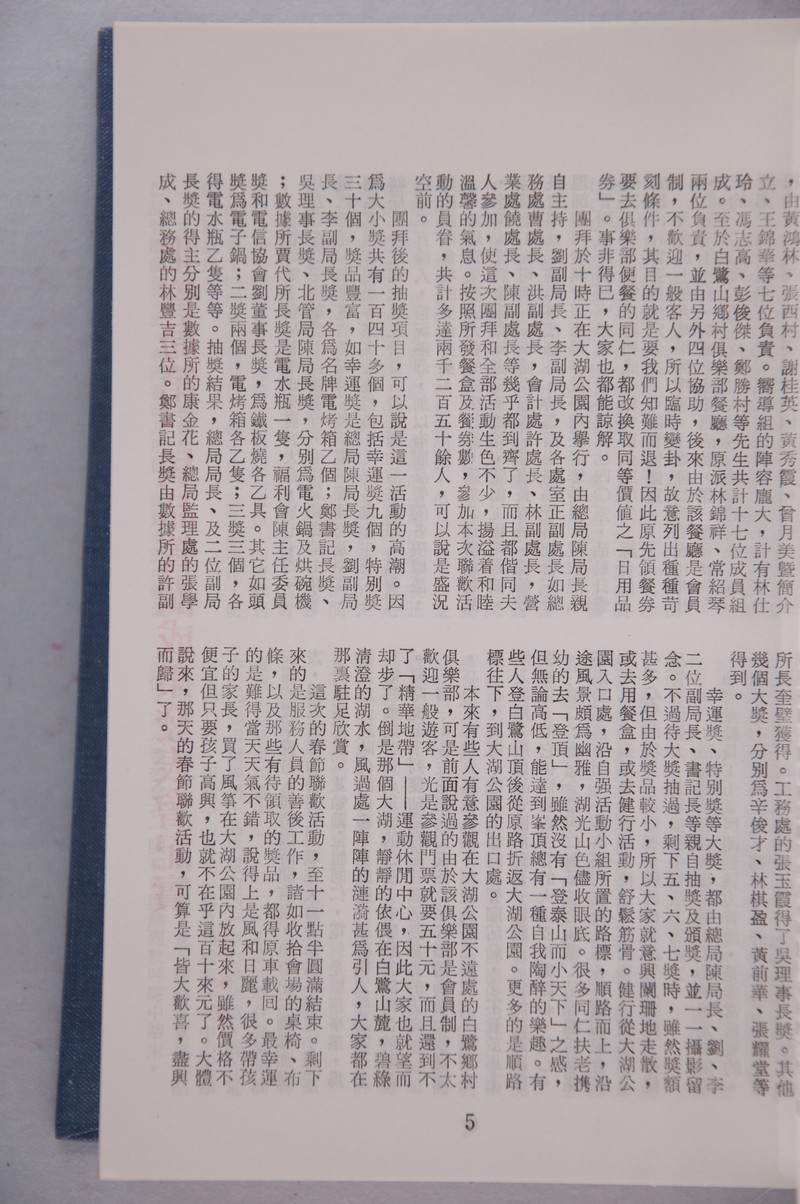 ，由黃鴻林、張西村、謝桂英、黃秀霞、曾月美暨簡介
立、王錦華等七位負責。嚮導組的陣容龐大，計有林仕
玲、馮志高、彭俊傑、鄭勝村等先生共計十七位成員組
成。至於白鷺山鄉村俱樂部餐廳，原派林錦祥、常紹琴
兩位負責，並由另外四位協助，後來由於該餐廳是會員
制，不歡迎一般客人，所以臨時變卦，故意列出種種苛
刻條件，其目的就是要我們知難而退！因此原先領餐券
要去俱樂部便餐的同仁，都改換取同等價值之「日用品
券」。事非得已，大家也都能諒解。
團拜於十時正在大湖公園內舉行，由總局陳局長親
自主持，劉副局長、李副局長，及各處室正副處長如總
務處曹處長、洪副處長，會計處許處長、林副處長，營
業處饒處長、陳副處長等幾乎都到齊了，而且都偕同夫
人參加，使這次團拜和全部活動生色不少，揚溢着和睦
溫馨的氣息。按照所發餐盒及餐券數，參加本次聯歡活
動的員眷，共計多達兩千二百五十餘人，可以說是盛況
空前。
團拜後的抽獎項目，可以說是這一活動的高潮。因
為大小獎共有一百四十多個，包括幸運獎九個，特別獎
三十個，獎品豐富，如幸運獎是總局陳局長獎，劉副局
長、李副局長獎，各為名牌電烤箱乙個；鄭書記長獎、
吳理事長獎、北管局陳局長獎，分別為電火鍋及烘碗機
；數據所賈代所長獎是電水瓶一隻，福利會陳主任委員
獎和電信協會劉董事長獎，為鐵板燒各乙具。其它如頭
獎為電子鍋；二獎兩個，電烤箱各乙隻；三獎三個，各
得電水瓶乙隻等等。抽獎結果，總局局長、及二位副局
長獎的得主分別是數據所的康金花、總局監理處的張學
成、總務處的林豐吉三位。鄭書記長獎由數據所的許副
所長奎壁獲得。工務處的張玉霞得了吳理事長獎。其他
幾個大獎，分別為辛俊才、林棋盈、黃前華、張耀堂等
得到。
幸運獎、特別獎等大獎，都由總局陳局長、劉、李
二位副局長、書記長等親自抽獎及頒獎，並一一攝影留
念。不過待大獎抽過，剩下五、六、七獎時，雖然獎額
甚多，但由於獎品較小，所以大家就意興闌珊地走散，
或去用餐盒，或去健行活動，舒鬆筋骨。健行從大湖公
園入口處，沿自強活動小組所置的路標，順路而上，沿
途風景頗為幽雅，湖光山色儘收眼底。很多同仁扶老携
幼的去「登頂」，雖然沒有「登泰山而小天下」之感，
但無論高低，能達到峯頂總有一種自我陶醉的樂趣。有
些人登白鷺山頂後從原路折返大湖公園。更多的是順路
標往下，到大湖公園的出口處。
本來有些人有意參觀在大湖公園不遠處的白鷺鄉村
俱樂部，可是前面說過的由於該俱樂部是會員制，不太
歡迎一般遊客，光是參觀門票就要五十元，而且還到不
了「精華地帶」——運動休閒中心，因此大家也就望而
却步了。倒是那個大湖，靜靜的依偎在白鷺山麓，碧綠
清澄的湖水，風過處一陣陣的漣漪甚為引人，大家都在
那裏駐足欣賞。
這次的春節聯歡活動，至十一點半圓滿結束。剩下
來的是服務人員的善後工作，諸如收拾會場的桌椅、布
條，以及那些有待領取的獎品，都得原車載囘。最幸運
的是難得當天天氣不錯，說得上是風和日麗，很多帶孩
子的家長，買了風箏在大湖公園內放起來，雖然價格不
便宜但只要孩子高興，也就不在乎這百十來元了。大體
說來，那天的春節聯歡活動，可算是「皆大歡喜，盡興
而歸」了。
5